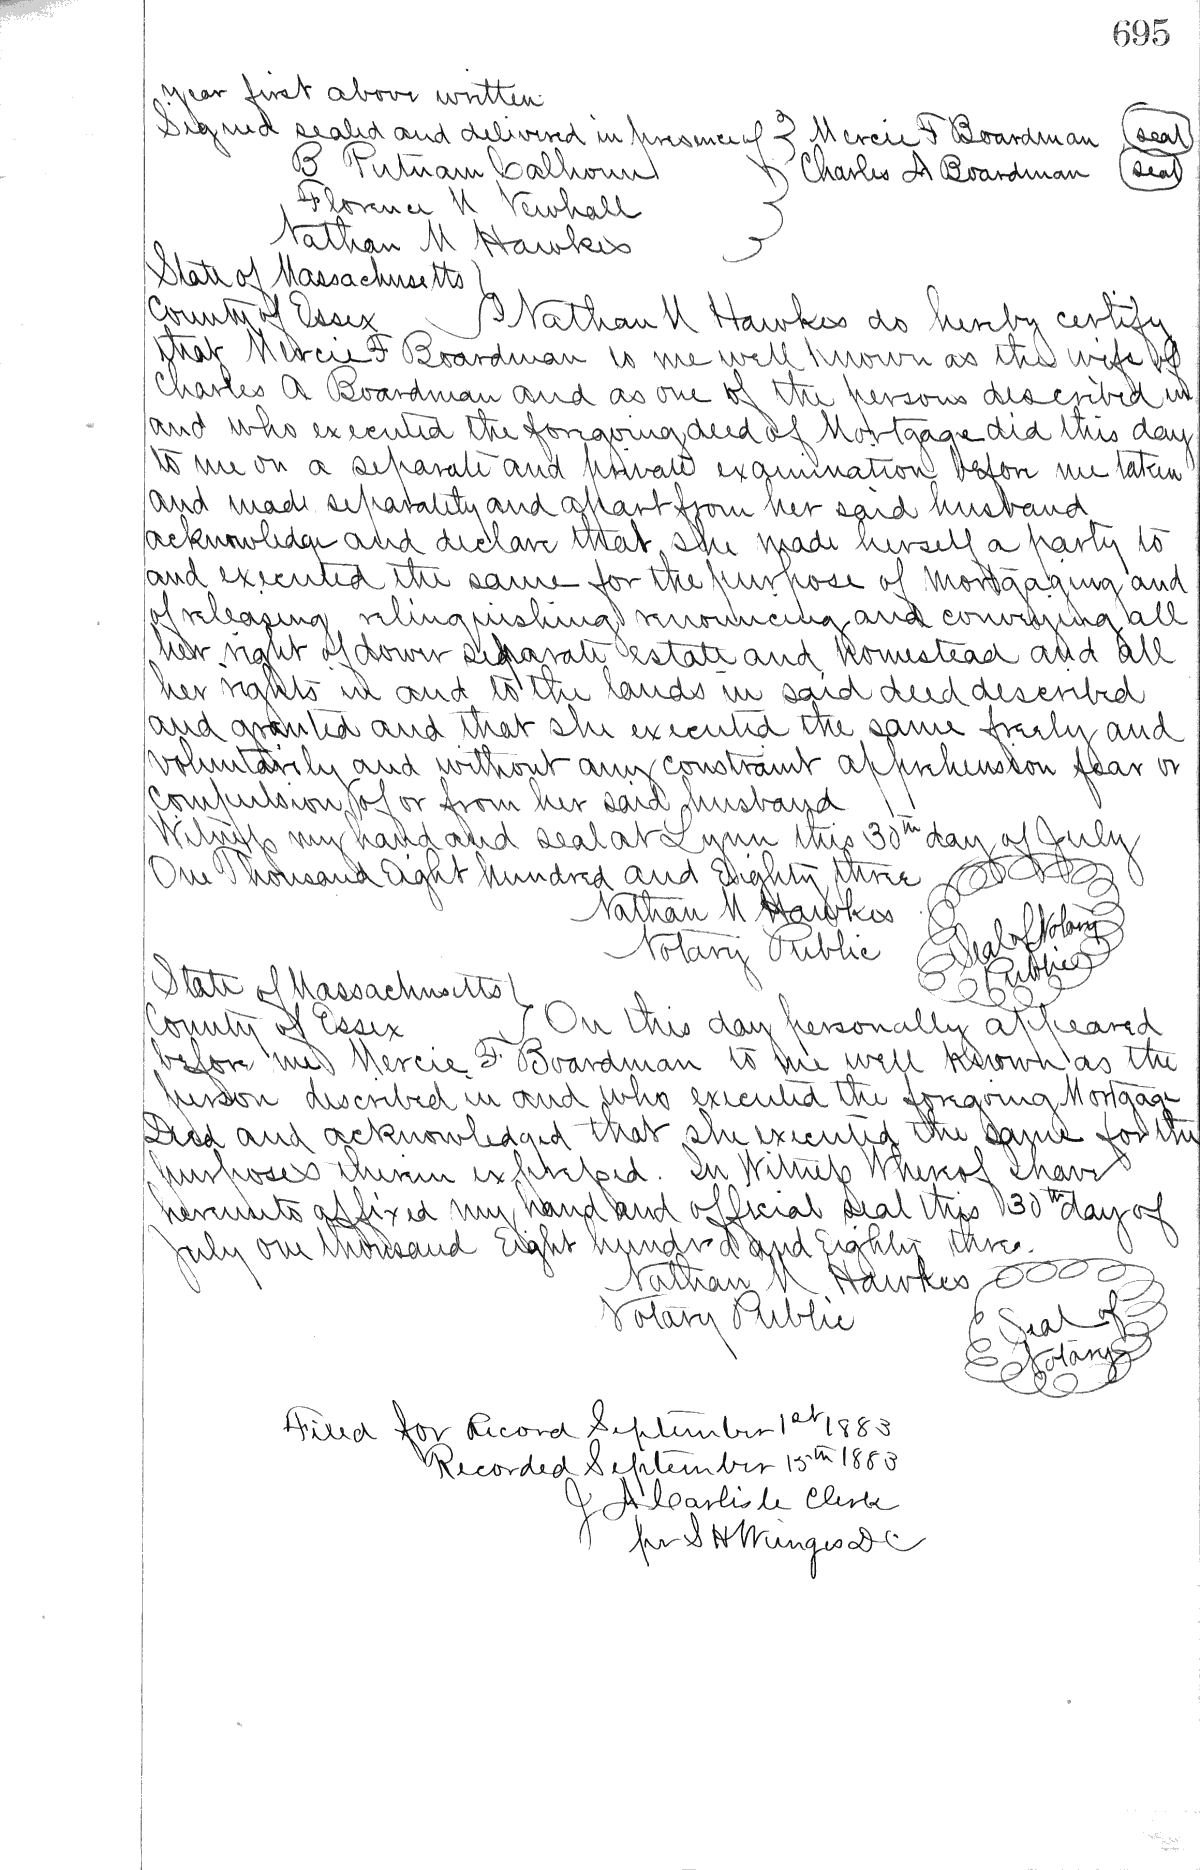 695
year first above written
Signed sealed and delivered in presence of } Mercie F Boardman (seal)
B Putnam Calhoun } Charles A Boardman (seal)
Florence N Newhall
Nathan M Hawkes
State of Massachusetts
County of Essex } I Nathan M Hawkes do hereby certify
that Mercie F Boardman to me well known as the wife of
Charles A Boardman and as one of the persons described in
and who executed the foregoing deed of Mortgage did this day
to me on a separate and private examination before me taken
and made separately and apart from her said husband
acknowledge and declare that she made herself a party to
and executed the same for the purpose of mortgaging and
of releasing relinquishing renouncing and conveying all
her right of dower separate estate and homestead and all
her rights in and to the lands in said deed described
and granted and that she executed the same freely and
voluntarily and without any constraint apprehension fear or
compulsion of or from her said husband
Witness my hand and seal at Lynn this 30th day of July
One Thousand Eight hundred and Eighty three
Nathan M Hawkes
Notary Public
Seal of Notary
Public
State of Massachusetts
County of Essex } On this day personally appeared
before me Mercie F Boardman to me well known as the
person described in and who executed the foregoing Mortgage
Deed and acknowledged that she executed the same for the
purposes therein expressed. In Witness Whereof I have
hereunto affixed my hand and official seal this 30th day of
July one thousand Eight hundred and Eighty three.
Nathan M Hawkes
Notary Public
Seal of
Notary
Filed for Record September 1st 1883
Recorded September 15th 1883
J A Carlisle Clerk
per S H DC